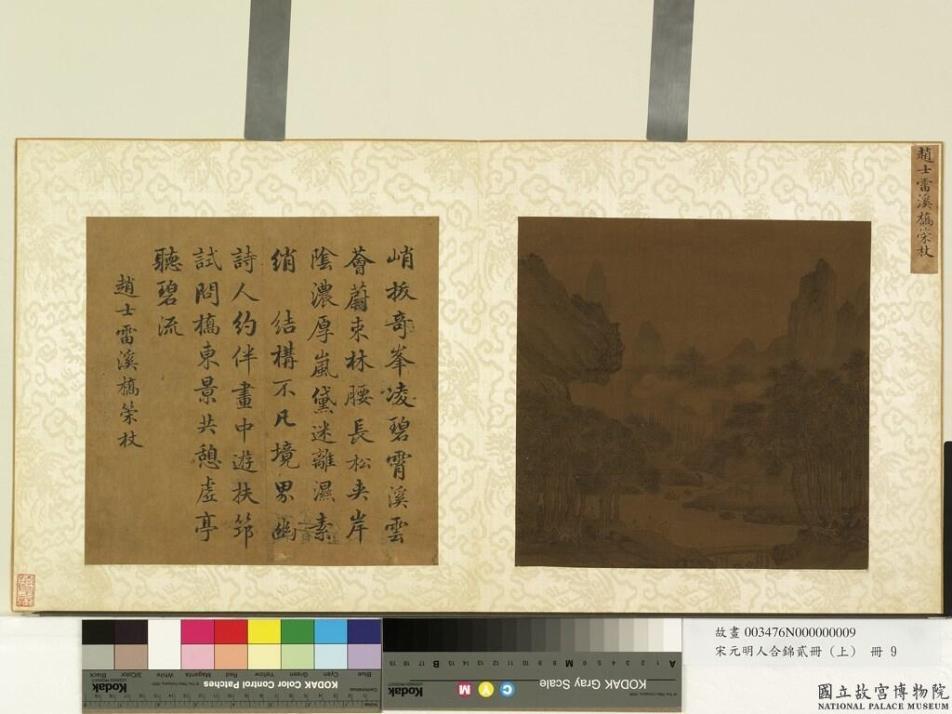 趙士雷溪橋策杖
峭拔奇峯凌碧霄溪雲
薈蔚束林腰長松夾岸
陰濃厚嵐黛迷離濕素
綃 結構不凡境界幽
詩人約伴畫中遊扶筇
試問橋東景共憩虛亭
聽碧流
趙士雷溪橋策杖
KODAK Color Control Patches
Blue Cyan Green Yellow Red Magenta White 3/Color Black
Kodak
KODAK Gray Scale
C Y M
Kodak
A 1 2 3 4 5 6 M 8 9 10 11 12 13 14 15 B 17 18 19
故畫 003476N000000009
宋元明人合錦貳冊（上） 冊 9
國立故宮博物院
NATIONAL PALACE MUSEUM